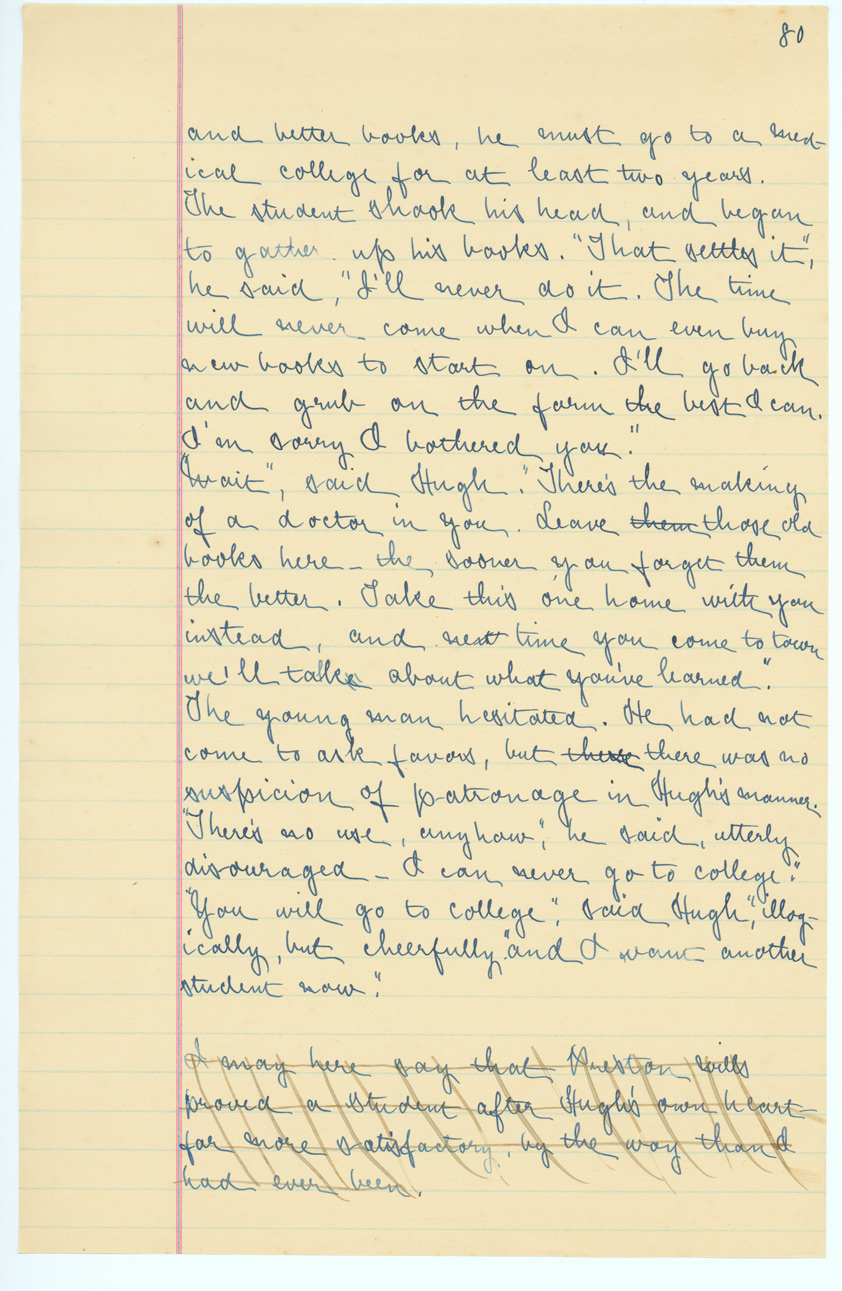 80
and better books, he must go to a med-
ical college for at least two years.
The student shook his head, and began
to gather up his books. "That settles it",
he said, "I'll never do it. The time
will never come when I can even buy
new books to start on. I'll go back
and grub on the farm the best I can.
I'm sorry I bothered you."
"Wait", said Hugh. "There's the making
of a doctor in you. Leave them those old
books here - the sooner you forget them
the better. Take this one home with you
instead, and next time you come to town
we'll talk about what you've learned".
The young man hesitated. He had not
come to ask favors, but there there was no
suspicion of patronage in Hugh's manner.
"There's no use, anyhow", he said, utterly
disouraged - I can never go to college."
"You will go to college", said Hugh, "illog-
ically, but cheerfully, "and I want another
student now".
I may here say that Preston Wills
proved a student after Hugh's own heart-
far more satisfactory, by the way than I
had ever been.